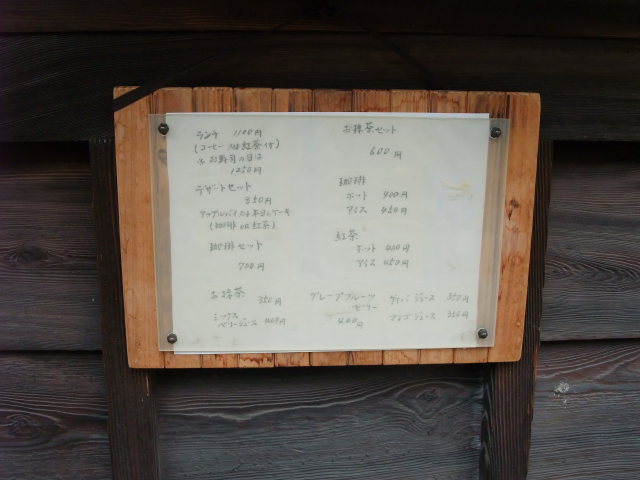 ランチ 1100円
(コーヒー 又は 紅茶付)
※お寿司の日は
1250円
デザートセット
850円
アップルパイ又は本日のケーキ
(珈琲 OR 紅茶)
珈琲セット
700円
お抹茶 350円
ミックス
ベリージュース 400円
お抹茶セット
600円
珈琲
ホット 400円
アイス 450円
紅茶
ホット 400円
アイス 450円
グレープフルーツ
ゼリー
400円
グァバジュース 350円
マンゴジュース 350円